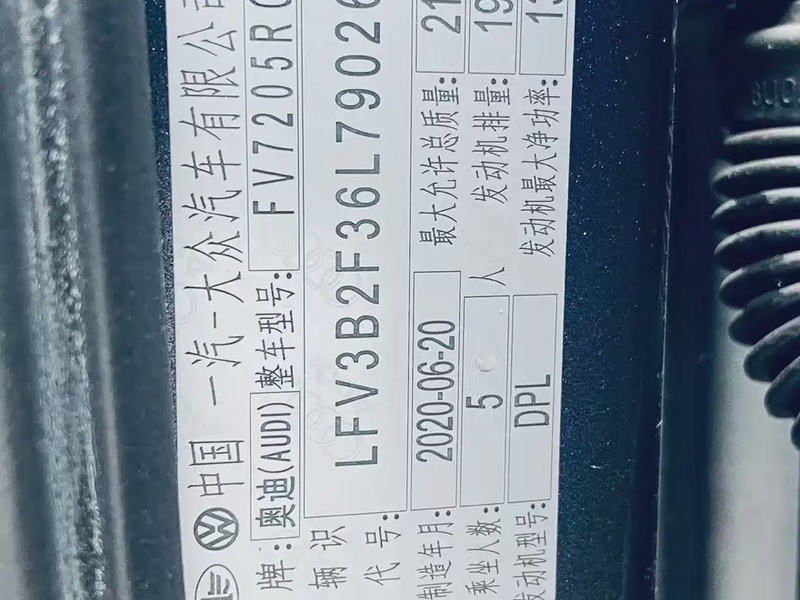 中国 一汽-大众汽车有限公司
牌:奥迪(AUDI) 整车型号: FV7205RC
辆识
代号: LFV3B2F36L79026
制造年月: 2020-06-20 最大允许总质量: 21
乘坐人数: 5 人 发动机排量: 19
发动机型号: DPL 发动机最大净功率: 13